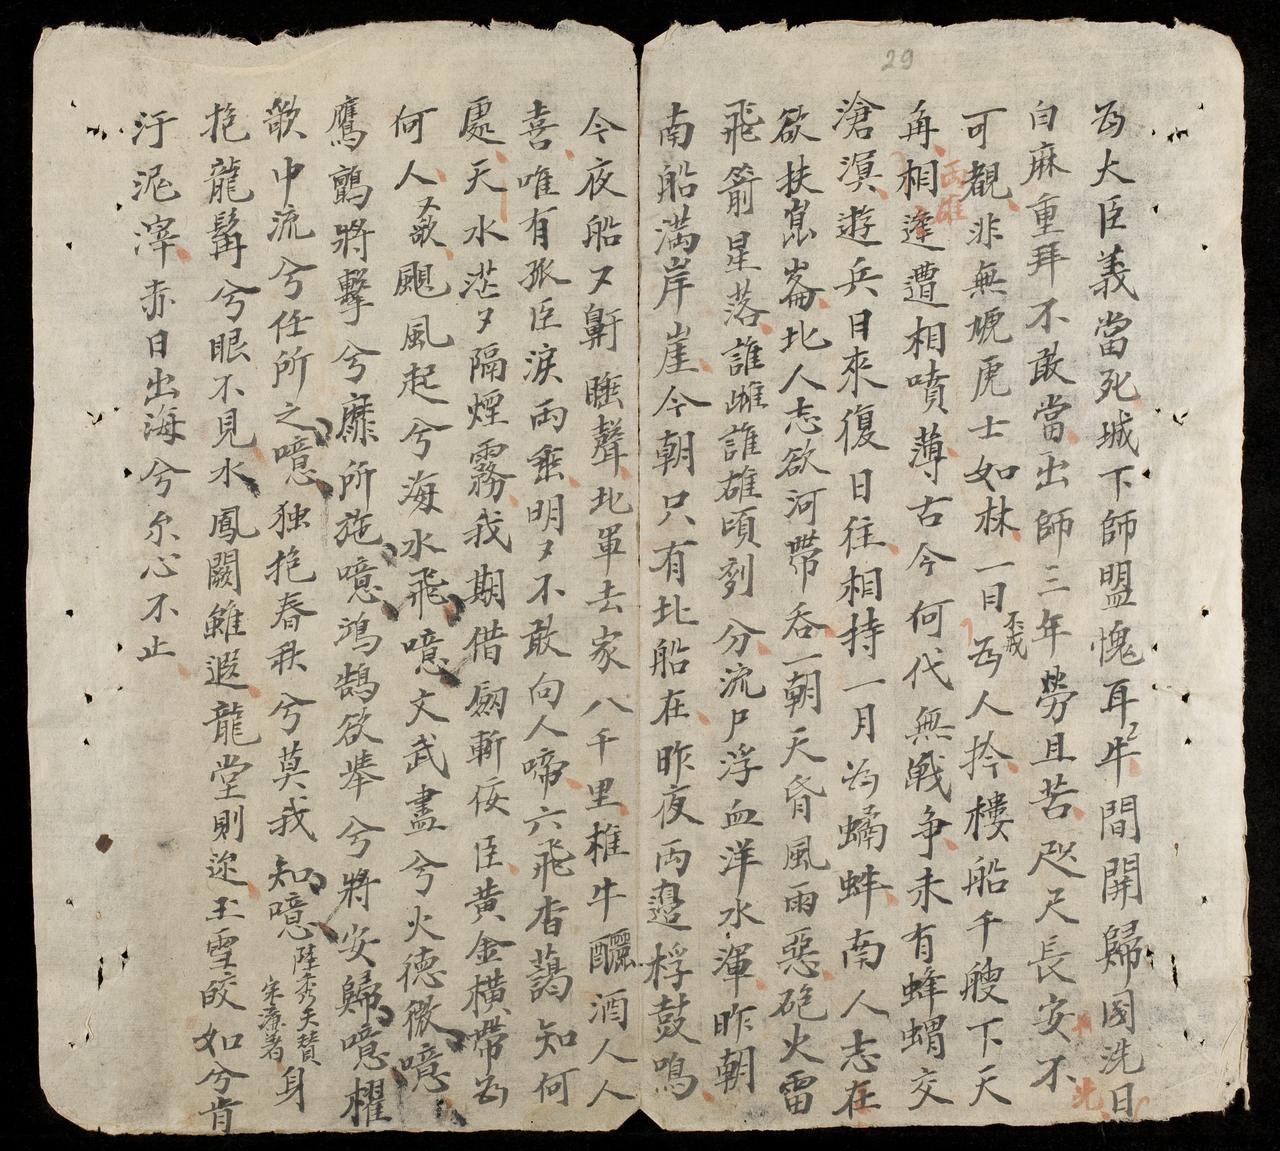 29
為大臣義當死城下師盟愧耳牛間關歸國洗日
白麻重拜不敢當出師三年勞且苦咫尺長安不
可覩非無虓虎士如林一日不戒為人擒樓船千艘下天
兩雄
角相逢遭相噴薄古今何代無戰争未有蜂蝟交
滄溟遊兵日來復日往相持一月為鷸蚌南人志在
欲扶崑崙北人志欲河帶吞一朝天昏風雨惡砲火雷
飛箭星落誰雌誰雄頃刻分流尸浮血洋水渾昨朝
南船滿岸崖今朝只有北船在昨夜兩邉桴鼓鳴
今夜船〻鼾睡聲北軍去家八千里椎牛釃酒人人
喜唯有孤臣淚兩垂明〻不敢向人啼六飛杳藹知何
處天水茫〻隔煙霧我期借劔斬佞臣黄金橫帶為
何人〻歌颶風起兮海水飛噫文武盡兮火德微噫
鷹鸇將擊兮靡所施噫鴻鵠欲舉兮將安歸噫櫂
歌中流兮任所之噫独抱春秋兮莫我知噫陸秀夫賛宋濂著身
抱龍髯兮眼不見水鳳闕雖遐龍堂則迩玉雪皎如兮肯
汙泥滓赤日出海兮尔心不止